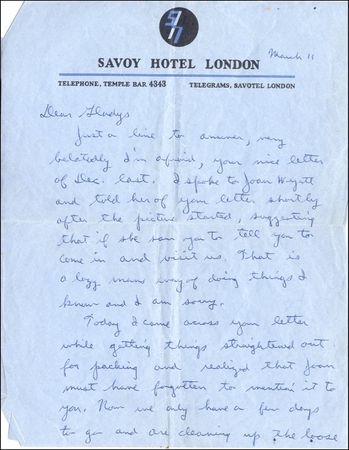 SAVOY HOTEL LONDON
March 11
TELEPHONE, TEMPLE BAR 4343 TELEGRAMS, SAVOTEL LONDON
Dear Gladys
Just a line to answer, very
belatedly I'm afraid, your nice letter
of Dec. last. I spoke to Joan Wyatt
and told her of your letter shortly
after the picture started, suggesting
that if she saw you to tell you to
come in and visit us. That is
a lazy mans way of doing things I
know and I am sorry.
Today I came across your letter
while getting things straightened out
for packing and realized that Joan
must have forgotten to mention it to
you. Now we only have a few days
to go and are cleaning up the loose